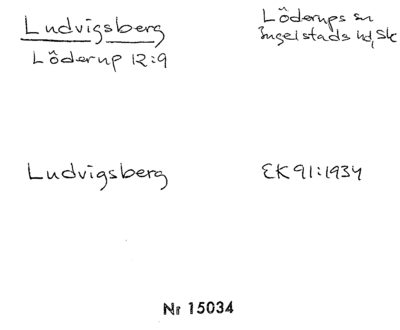 Ludvigsberg
Löderup 12:9
Löderups sn
Ingelstads hd, Sk
Ludvigsberg
EK 91:1934
Nr 15034